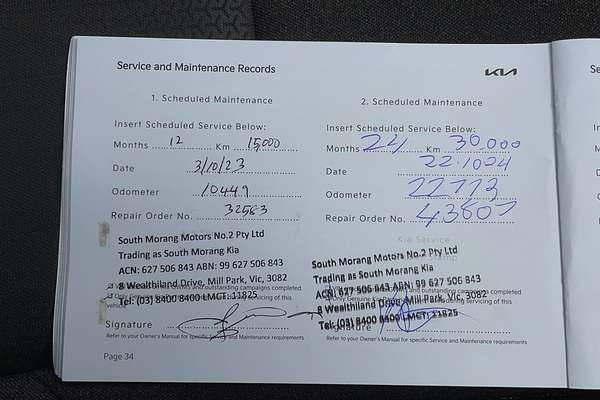 Service and Maintenance Records
KIA
1. Scheduled Maintenance
Insert Scheduled Service Below:
Months 12 Km 15,000
Date 3/10/23
Odometer 10449
Repair Order No. 32563
South Morang Motors No.2 Pty Ltd
Trading as South Morang Kia
ACN: 627 506 843 ABN: 99 627 506 843
8 Wealthiland Drive, Mill Park, Vic, 3082
Tel: (03) 8400 8400 LMCT: 11825
Signature
Refer to your Owner's Manual for specific Service and Maintenance requirements
Page 34
2. Scheduled Maintenance
Insert Scheduled Service Below:
Months 24 Km 30,000
Date 22.10.24
Odometer 22773
Repair Order No. 43807
Kia Service
South Morang Motors No.2 Pty Ltd
Trading as South Morang Kia
ACN: 627 506 843 ABN: 99 627 506 843
8 Wealthiland Drive, Mill Park, Vic, 3082
Tel: (03) 8400 8400 LMCT: 11825
Signature
Refer to your Owner's Manual for specific Service and Maintenance requirements